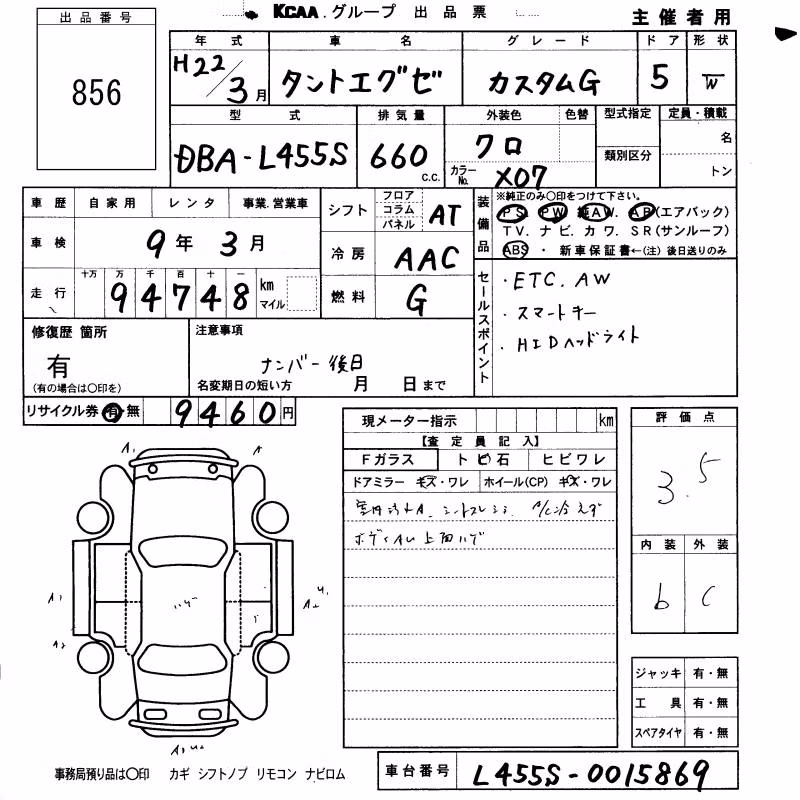 KCAA.グループ 出品票
主催者用
出品番号
856
年式 車名 グレード ドア 形状
H22/3月 タントエグゼ カスタムG 5 W
型式 排気量 外装色 色替 型式指定 定員・積載
DBA-L455S 660 C.C. クロ カラーNo. X07 類別区分 名 トン
車歴 自家用 レンタ 事業.営業車
車検 9年 3月
走行 十万 万 千 百 十 一
94748 km マイル
シフト フロア コラム パネル AT
冷房 AAC
燃料 G
装備品
※純正のみ〇印をつけて下さい。
PS. PW. 純AW. AB(エアバック)
TV. ナビ. カワ. SR(サンルーフ)
ABS ・ 新車保証書←(注) 後日送りのみ
セールスポイント
・ETC. AW
・スマートキー
・HIDヘッドライト
修復歴 箇所
有
(有の場合は〇印を)
注意事項
ナンバー後日
名変期日の短い方 月 日まで
リサイクル券 有・無 9460円
現メーター指示 km
【査定員記入】
Fガラス トビ石 ヒビワレ
ドアミラー キズ・ワレ ホイール(CP) キズ・ワレ
ボディAL上面ハゲ
評価点
3.5
内装 外装
b C
A1 A
A1
A2
ハゲ
ジャッキ 有・無
工具 有・無
スペアタイヤ 有・無
事務局預り品は〇印 カギ シフトノブ リモコン ナビロム
車台番号 L455S-0015869